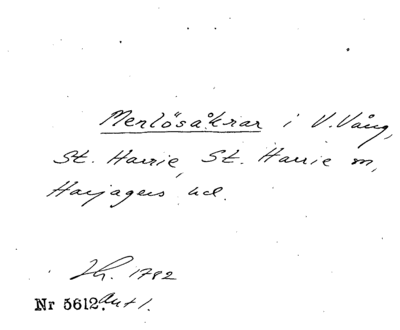 Merlösåkrar i V. Vång,
St. Harrie, St. Harrie sn,
Harjagers hd.
1792
Nr 5612. Ant 1.